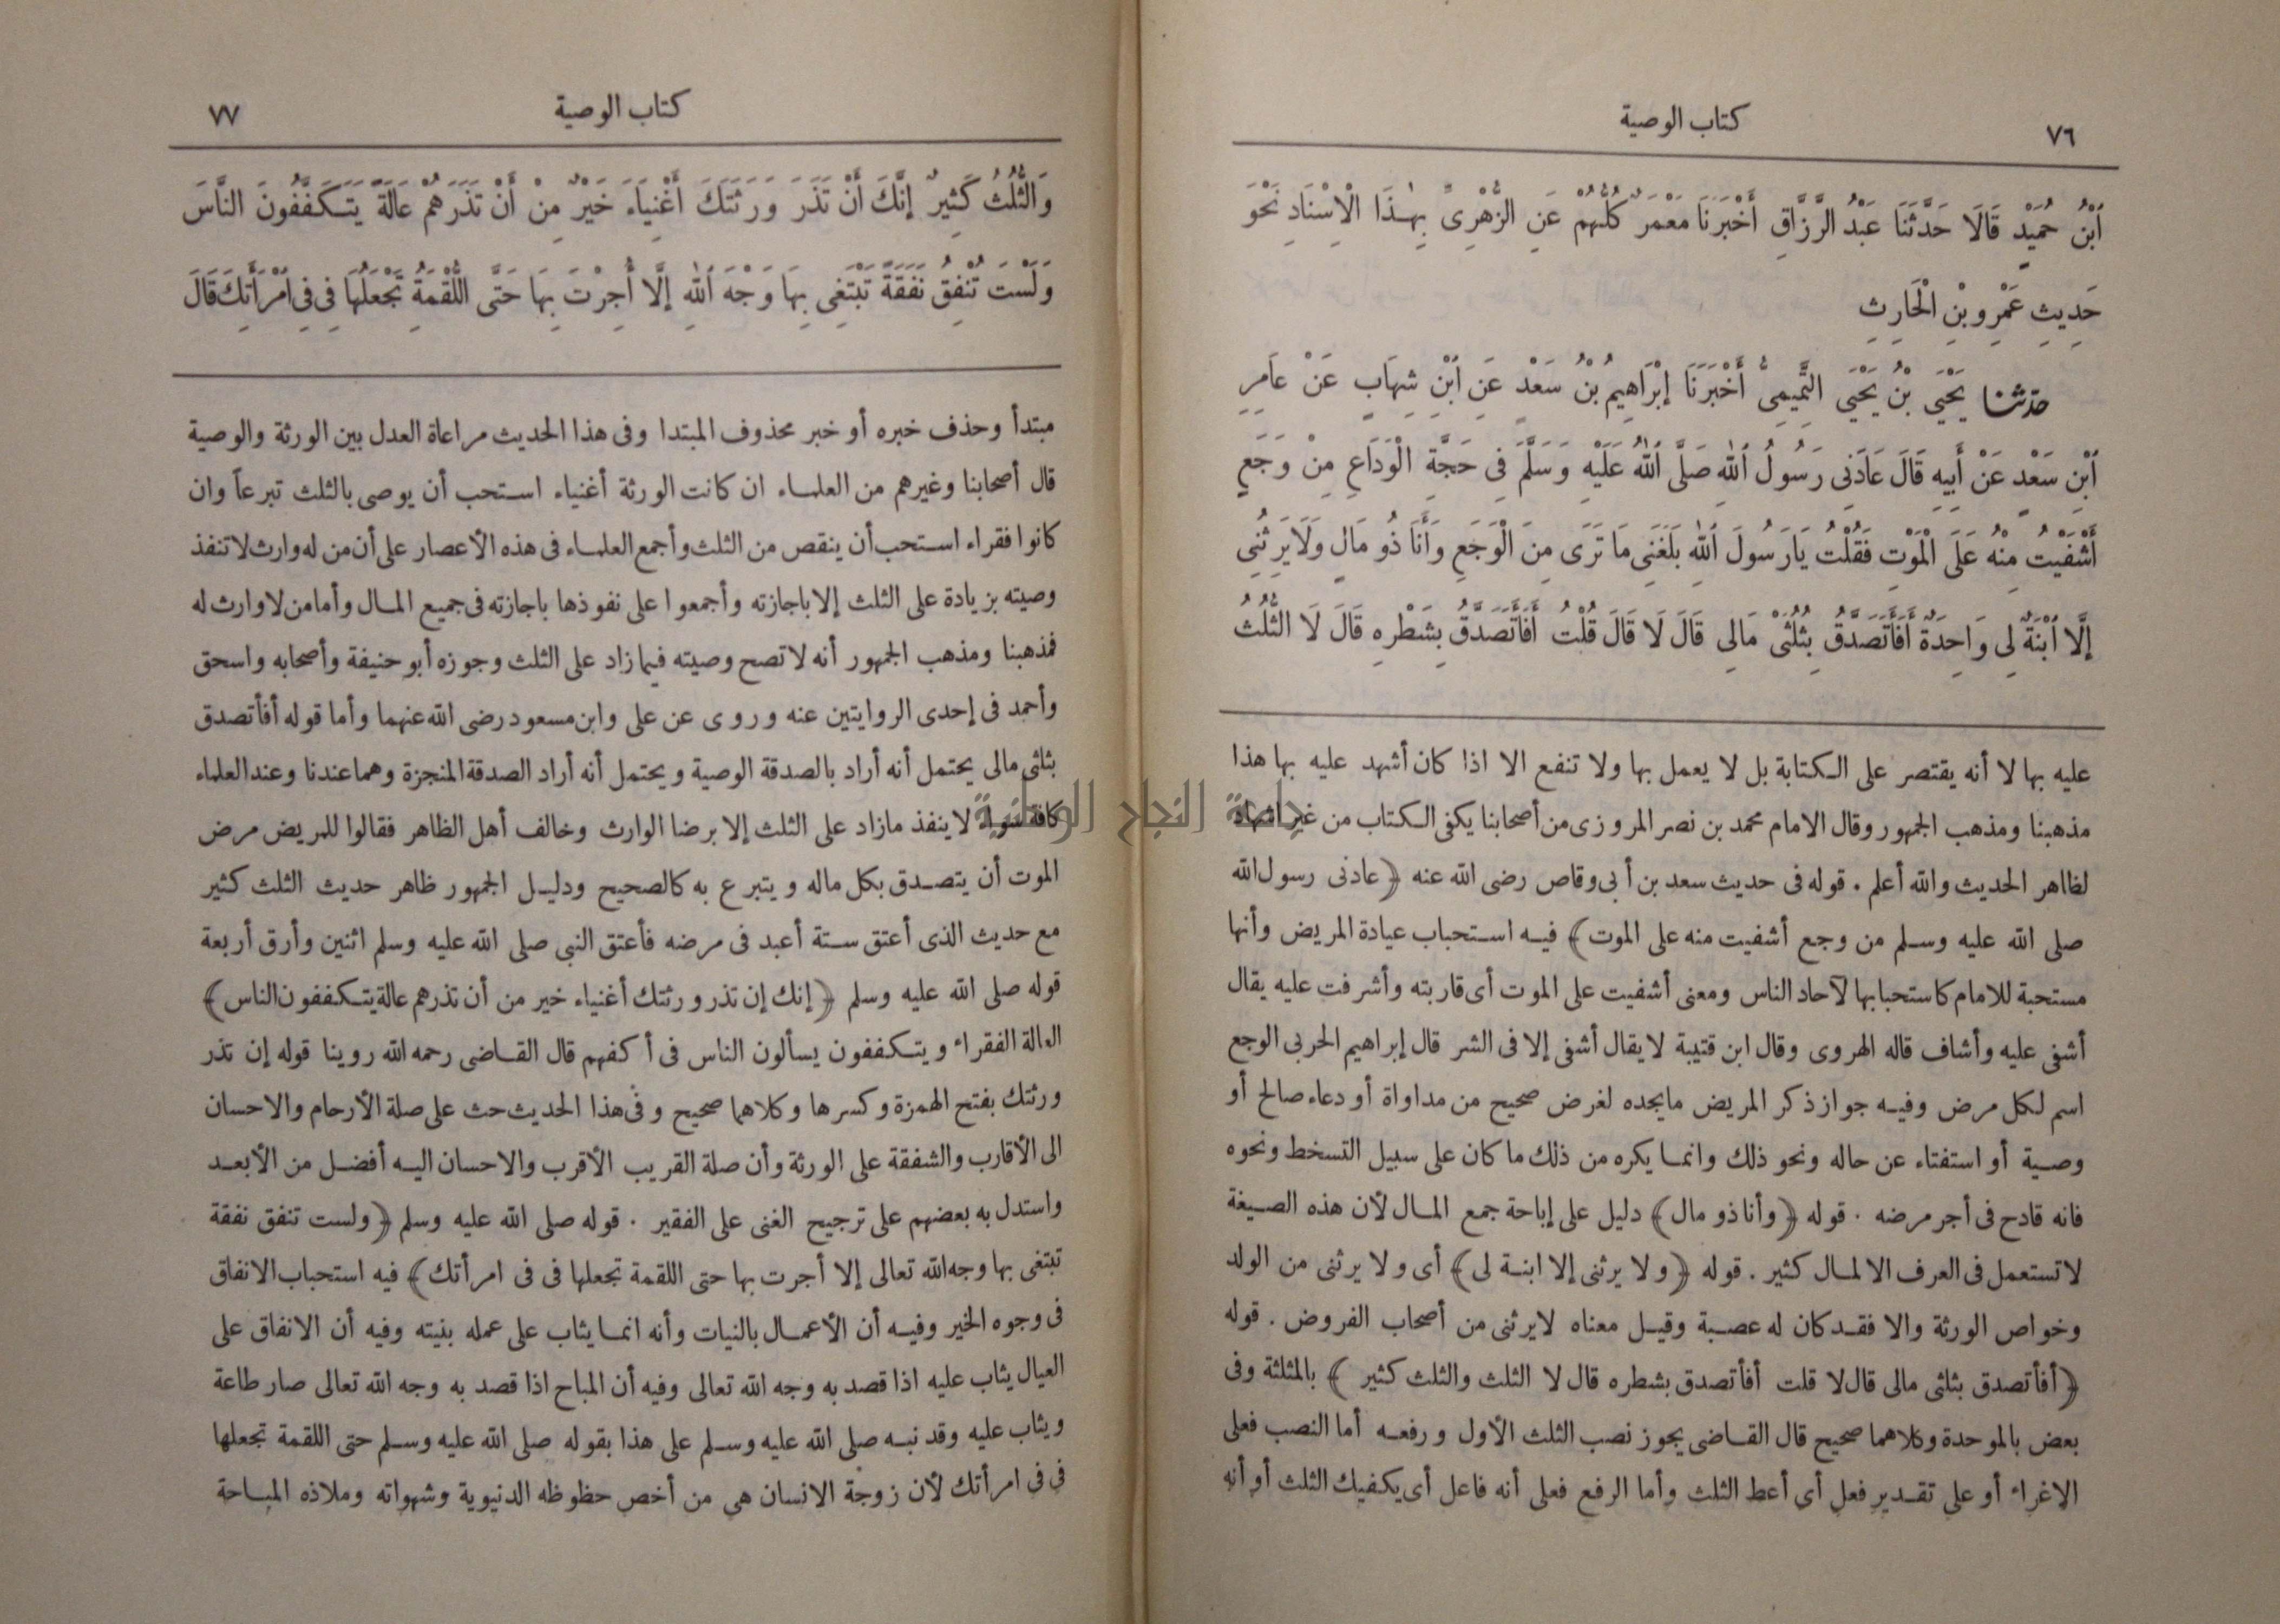 ٧٦
كتاب الوصية
ٱبْنُ حُمَيْدٍ قَالَا حَدَّثَنَا عَبْدُ الرَّزَّاقِ أَخْبَرَنَا مَعْمَرٌ كُلُّهُمْ عَنِ الزُّهْرِىِّ بِهٰذَا الْإِسْنَادِ نَحْوَ
حَدِيثِ عَمْرِو بْنِ الْحَارِثِ
حدثنا يَحْيَى بْنُ يَحْيَى التَّمِيمِىُّ أَخْبَرَنَا إِبْرَاهِيمُ بْنُ سَعْدٍ عَنِ ٱبْنِ شِهَابٍ عَنْ عَامِرِ
ٱبْنِ سَعْدٍ عَنْ أَبِيهِ قَالَ عَادَنِى رَسُولُ ٱللهِ صَلَّى ٱللهُ عَلَيْهِ وَسَلَّمَ فِى حَجَّةِ الْوَدَاعِ مِنْ وَجَعٍ
أَشْفَيْتُ مِنْهُ عَلَى الْمَوْتِ فَقُلْتُ يَارَسُولَ ٱللهِ بَلَغَنِى مَا تَرَى مِنَ الْوَجَعِ وَأَنَا ذُو مَالٍ وَلَايَرِثُنِى
إِلَّا ٱبْنَةٌ لِى وَاحِدَةٌ أَفَأَتَصَدَّقُ بِثُلُثَىْ مَالِى قَالَ لَا قَالَ قُلْتُ أَفَأَتَصَدَّقُ بِشَطْرِهِ قَالَ لَا الثُّلُثُ
عليه بها لا أنه يقتصر على الكتابة بل لا يعمل بها ولا تنفع الا اذا كان أشهد عليه بها هذا
مذهبنا ومذهب الجمهور وقال الامام محمد بن نصر المروزى من أصحابنا يكفى الكتاب من غير اشهاد
لظاهر الحديث والله أعلم . قوله فى حديث سعد بن أبى وقاص رضى الله عنه ﴿عادنى رسول الله
صلى الله عليه وسلم من وجع أشفيت منه على الموت﴾ فيه استحباب عيادة المريض وأنها
مستحبة للامام كاستحبابها لآحاد الناس ومعنى أشفيت على الموت أى قاربته وأشرفت عليه يقال
أشفى عليه وأشاف قاله الهروى وقال ابن قتيبة لا يقال أشفى إلا فى الشر قال إبراهيم الحربى الوجع
اسم لكل مرض وفيه جواز ذكر المريض مايجده لغرض صحيح من مداواة أو دعاء صالح أو
وصية أو استفتاء عن حاله ونحو ذلك وانما يكره من ذلك ما كان على سبيل التسخط ونحوه
فانه قادح فى أجر مرضه . قوله ﴿وأنا ذو مال﴾ دليل على إباحة جمع المال لأن هذه الصيغة
لا تستعمل فى العرف الا لمال كثير . قوله ﴿ولا يرثنى إلا ابنة لى﴾ أى ولا يرثنى من الولد
وخواص الورثة والا فقد كان له عصبة وقيل معناه لايرثنى من أصحاب الفروض . قوله
﴿أفأتصدق بثلثى مالى قال لا قلت أفأتصدق بشطره قال لا الثلث والثلث كثير﴾ بالمثلثة وفى
بعض بالموحدة وكلاهما صحيح قال القاضى يجوز نصب الثلث الأول ورفعه أما النصب فعلى
الاغراء أو على تقدير فعل أى أعط الثلث وأما الرفع فعلى أنه فاعل أى يكفيك الثلث أو أنه
كتاب الوصية
٧٧
وَالثُّلُثُ كَثِيرٌ إِنَّكَ أَنْ تَذَرَ وَرَثَتَكَ أَغْنِيَاءَ خَيْرٌ مِنْ أَنْ تَذَرَهُمْ عَالَةً يَتَكَفَّفُونَ النَّاسَ
وَلَسْتَ تُنْفِقُ نَفَقَةً تَبْتَغِى بِهَا وَجْهَ ٱللهِ إِلَّا أُجِرْتَ بِهَا حَتَّى اللُّقْمَةُ تَجْعَلُهَا فِى فِى ٱمْرَأَتِكَ قَالَ
مبتدأ وحذف خبره أو خبر محذوف المبتدا وفى هذا الحديث مراعاة العدل بين الورثة والوصية
قال أصحابنا وغيرهم من العلماء ان كانت الورثة أغنياء استحب أن يوصى بالثلث تبرعاً وان
كانوا فقراء استحب أن ينقص من الثلث وأجمع العلماء فى هذه الأعصار على أن من له وارث لاتنفذ
وصيته بزيادة على الثلث إلا باجازته وأجمعوا على نفوذها باجازته فى جميع المال وأما من لا وارث له
فمذهبنا ومذهب الجمهور أنه لا تصح وصيته فيما زاد على الثلث وجوزه أبو حنيفة وأصحابه واسحق
وأحمد فى إحدى الروايتين عنه وروى عن على وابن مسعود رضى الله عنهما وأما قوله أفأتصدق
بثلثى مالى يحتمل أنه أراد بالصدقة الوصية ويحتمل أنه أراد الصدقة المنجزة وهما عندنا وعند العلماء
كافة سواء لا ينفذ مازاد على الثلث إلا برضا الوارث وخالف أهل الظاهر فقالوا للمريض مرض
الموت أن يتصدق بكل ماله ويتبرع به كالصحيح ودليل الجمهور ظاهر حديث الثلث كثير
مع حديث الذى أعتق ستة أعبد فى مرضه فأعتق النبى صلى الله عليه وسلم اثنين وأرق أربعة
قوله صلى الله عليه وسلم ﴿إنك إن تذر ورثتك أغنياء خير من أن تذرهم عالة يتكففون الناس﴾
العالة الفقراء ويتكففون يسألون الناس فى أكفهم قال القاضى رحمه الله روينا قوله إن تذر
ورثتك بفتح الهمزة وكسرها وكلاهما صحيح وفى هذا الحديث حث على صلة الأرحام والاحسان
الى الأقارب والشفقة على الورثة وأن صلة القريب الأقرب والاحسان اليه أفضل من الأبعد
واستدل به بعضهم على ترجيح الغنى على الفقير . قوله صلى الله عليه وسلم ﴿ولست تنفق نفقة
تبتغى بها وجه الله تعالى إلا أجرت بها حتى اللقمة تجعلها فى فى امرأتك﴾ فيه استحباب الانفاق
فى وجوه الخير وفيه أن الأعمال بالنيات وأنه انما يثاب على عمله بنيته وفيه أن الانفاق على
العيال يثاب عليه اذا قصد به وجه الله تعالى وفيه أن المباح اذا قصد به وجه الله تعالى صار طاعة
ويثاب عليه وقد نبه صلى الله عليه وسلم على هذا بقوله صلى الله عليه وسلم حتى اللقمة تجعلها
فى فى امرأتك لأن زوجة الانسان هى من أخص حظوظه الدنيوية وشهواته وملاذه المباحة
جامعة النجاح الوطنية